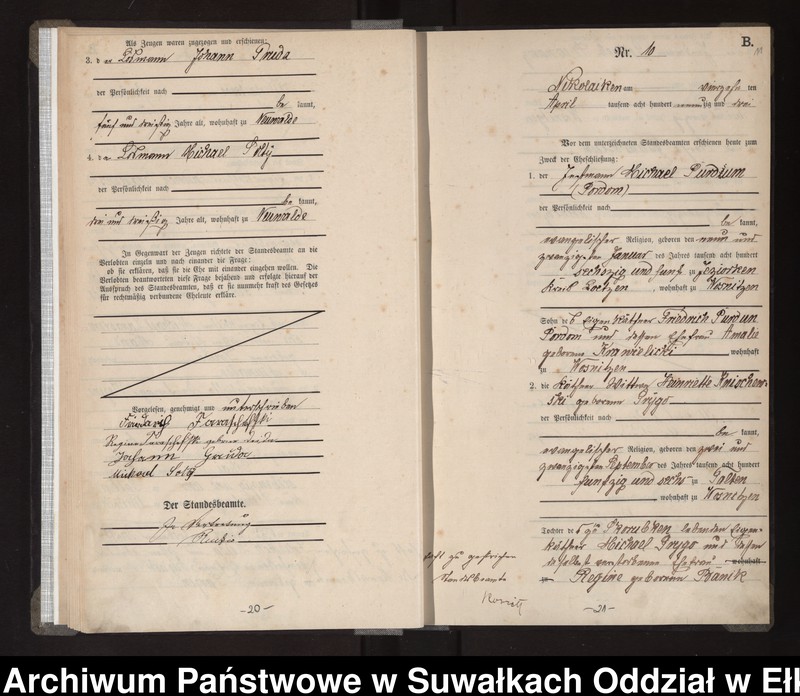 Als Zeugen waren zugezogen und erschienen:
3. der Losmann Johann Gruda
der Persönlichkeit nach
be kannt,
fünf und dreißig Jahre alt, wohnhaft zu Neuwalde
4. der Losmann Michael Soltÿ
der Persönlichkeit nach
be kannt,
drei und dreißig Jahre alt, wohnhaft zu Neuwalde
In Gegenwart der Zeugen richtete der Standesbeamte an die
Verlobten einzeln und nach einander die Frage:
ob sie erklären, daß sie die Ehe mit einander eingehen wollen. Die
Verlobten beantworteten diese Frage bejahend und erfolgte hierauf der
Ausspruch des Standesbeamten, daß er sie nunmehr kraft des Gesetzes
für rechtmäßig verbundene Eheleute erkläre.
Vorgelesen, genehmigt und unterschrieben
Johann Gruda
Michael Solty
Der Standesbeamte.
In Vertretung
-20-
B.
Nr. 10
Nikolaiken am vierzehn ten
April tausend acht hundert neunzig und drei
Vor dem unterzeichneten Standesbeamten erschienen heute zum
Zweck der Eheschließung:
1. der Instmann Michael Purdum
(Pordom)
der Persönlichkeit nach
be kannt,
evangelischer Religion, geboren den neun und
zwanzigsten Januar des Jahres tausend acht hundert
sechszig und fünf zu Jeziorken
Kreis Loetzen, wohnhaft zu Wosnitzen
Sohn des Eigenkäthner Friedrich Purdun
Pordom und dessen Ehefrau Amalie
geborene wohnhaft
zu Wosnitzen
2. die Käthner Wittwe Henriette
ski geborene Prygo
der Persönlichkeit nach
be kannt,
evangelischer Religion, geboren den zwei und
zwanzigsten September des Jahres tausend acht hundert
fünfzig und sechs zu Galten
wohnhaft zu Wosnitzen
Tochter des zu lebenden Eigen-
käthner Michael Prygo und dessen
daselbst verstorbenen Ehefrau wohnhaft
zu Regine geborenen
Standesbeamte
-21-
Archiwum Państwowe w Suwałkach Oddział w Eł